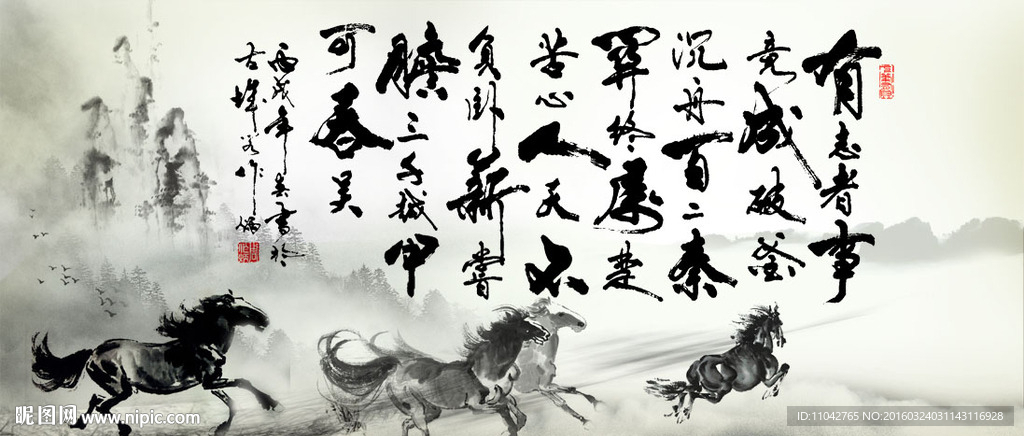 有志者事
竟成破釜
沉舟百二秦
關终属楚
苦心人天不
負卧薪嘗
膽三千越甲
可吞吴
丙戌年春書於
古城
昵图网 www.nipic.com
ID:11042765 NO:20160324031143116928